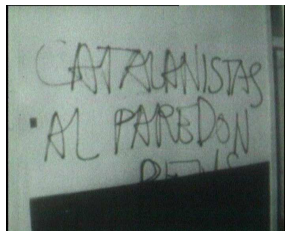 CATALANISTAS
AL PAREDON